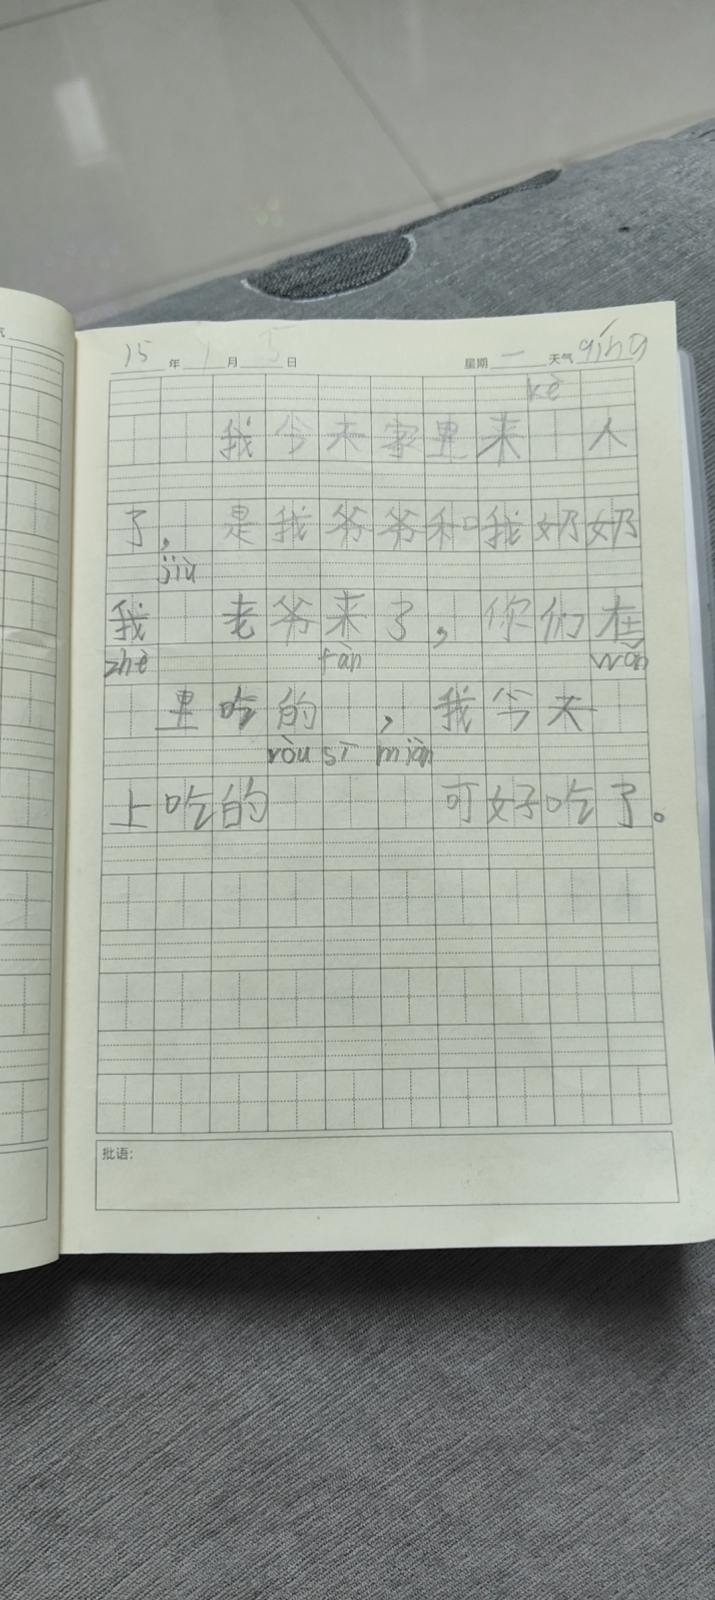 15 年 1 月 5 日 星期 一 天气 qíng
kè
我今天家里来 人
了，是我爷爷和我奶奶
jiù
我 老爷来了，你们在
zhè fàn wǎn
里吃的 ，我今天
ròu sī miàn
上吃的 可好吃了。
批语：